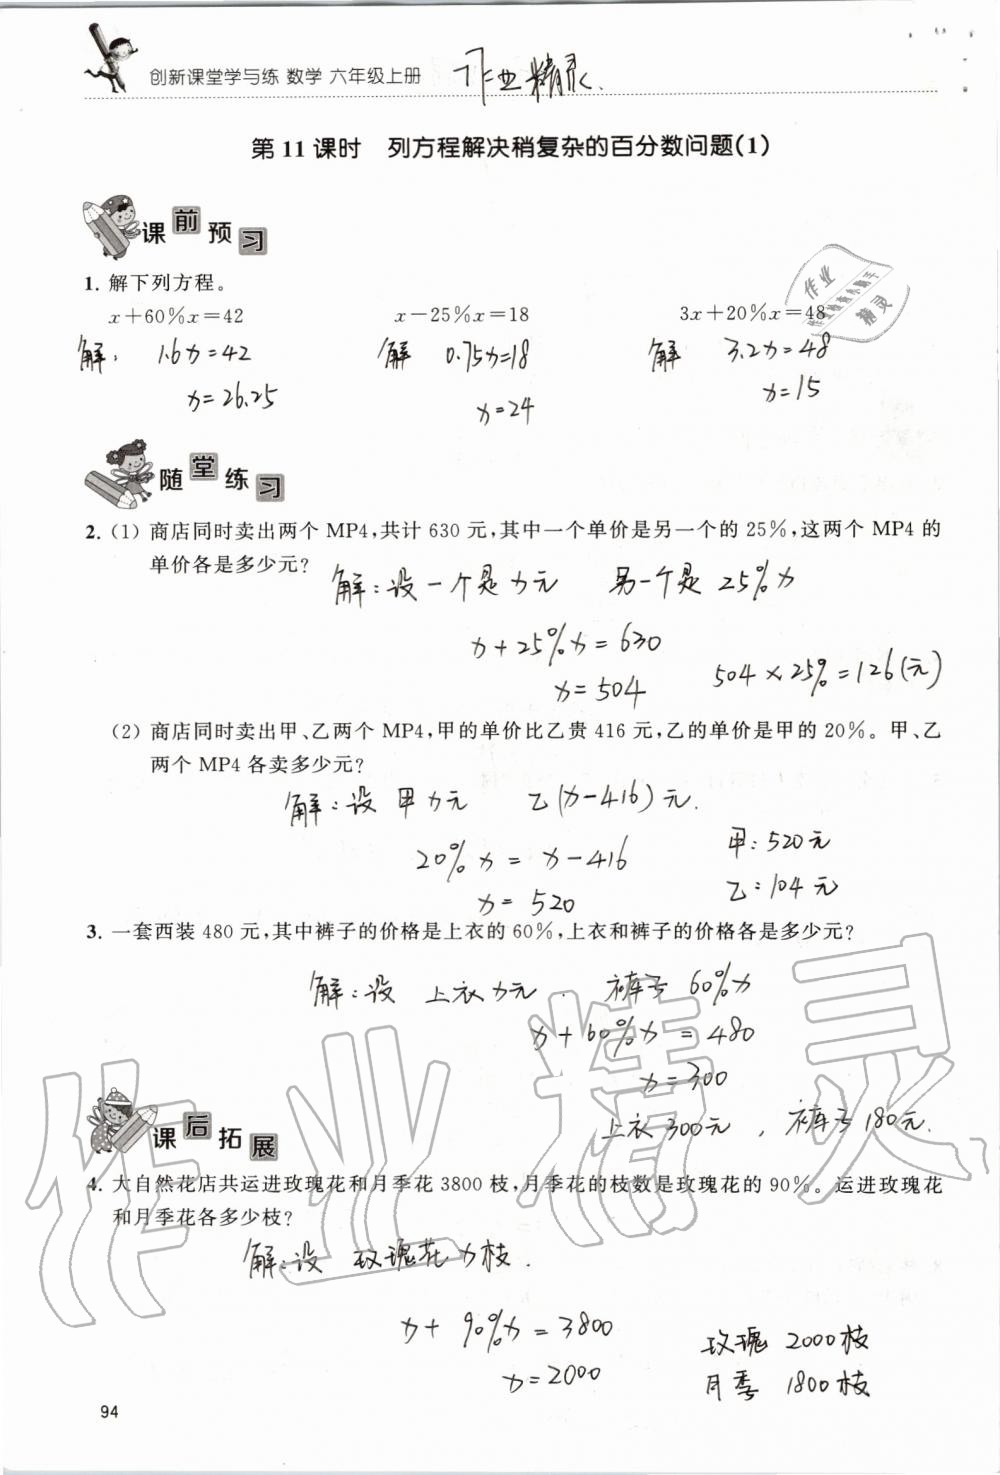 创新课堂学与练 数学 六年级上册
作业精灵
第11课时 列方程解决稍复杂的百分数问题(1)
课前预习
1. 解下列方程。
x+60%x=42 x-25%x=18 3x+20%x=48
解: 1.6x=42 解 0.75x=18 解 3.2x=48
x=26.25 x=24 x=15
作业
精灵
随堂练习
2. (1) 商店同时卖出两个 MP4,共计 630 元,其中一个单价是另一个的 25%,这两个 MP4 的
单价各是多少元?
解:设一个是x元 另一个是 25%x
x+25%x=630
x=504 504×25%=126(元)
(2) 商店同时卖出甲、乙两个 MP4,甲的单价比乙贵 416 元,乙的单价是甲的 20%。甲、乙
两个 MP4 各卖多少元?
解:设 甲x元 乙(x-416)元.
20%x=x-416 甲:520元
x=520 乙:104元
3. 一套西装 480 元,其中裤子的价格是上衣的 60%,上衣和裤子的价格各是多少元?
解:设 上衣x元. 裤子 60%x
x+60%x=480
x=300
上衣300元,裤子180元.
课后拓展
4. 大自然花店共运进玫瑰花和月季花 3800 枝,月季花的枝数是玫瑰花的 90%。运进玫瑰花
和月季花各多少枝?
解:设 玫瑰花x枝.
x+90%x=3800 玫瑰 2000枝
x=2000 月季 1800枝
作业精灵
94